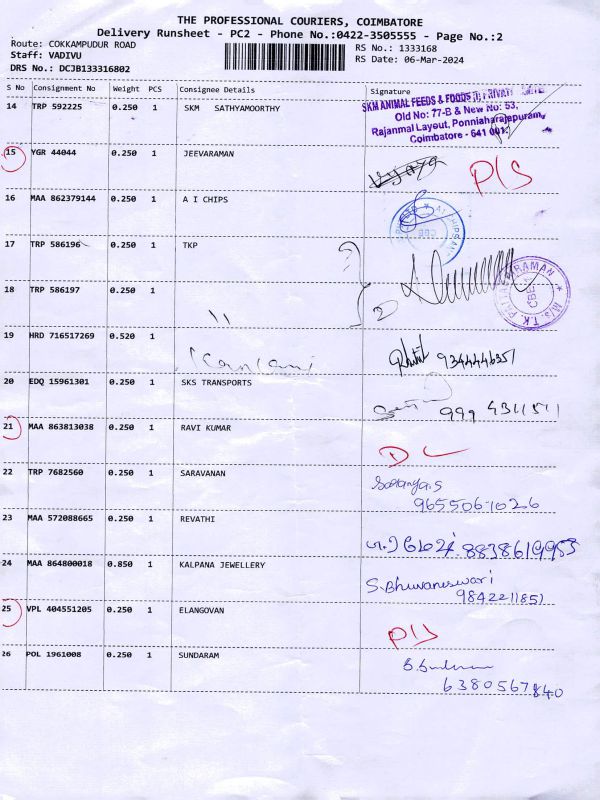 THE PROFESSIONAL COURIERS, COIMBATORE
Delivery Runsheet - PC2 - Phone No.:0422-3505555 - Page No.:2
Route: COKKAMPUDUR ROAD
Staff: VADIVU
DRS No.: DCJB133316802
RS No.: 1333168
RS Date: 06-Mar-2024
S No Consignment No Weight PCS Consignee Details Signature
14 TRP 592225 0.250 1 SKM SATHYAMOORTHY
SKM ANIMAL FEEDS & FOODS
Old No: 77-B & New No: 53,
Rajanmal Layout, Ponniaharajapuram,
Coimbatore - 641 001.
15 YGR 44044 0.250 1 JEEVARAMAN
16 MAA 862379144 0.250 1 A I CHIPS
17 TRP 586196 0.250 1 TKP
18 TRP 586197 0.250 1 "
19 HRD 716517269 0.520 1 9344446351
20 EDQ 15961301 0.250 1 SKS TRANSPORTS
21 MAA 863813038 0.250 1 RAVI KUMAR D L
22 TRP 7682560 0.250 1 SARAVANAN
Saranya.S
9655061026
23 MAA 572088665 0.250 1 REVATHI 8838619953
24 MAA 864800018 0.850 1 KALPANA JEWELLERY
S. Bhuvaneswari
9842211851
25 VPL 404551205 0.250 1 ELANGOVAN
26 POL 1961008 0.250 1 SUNDARAM
6380567840